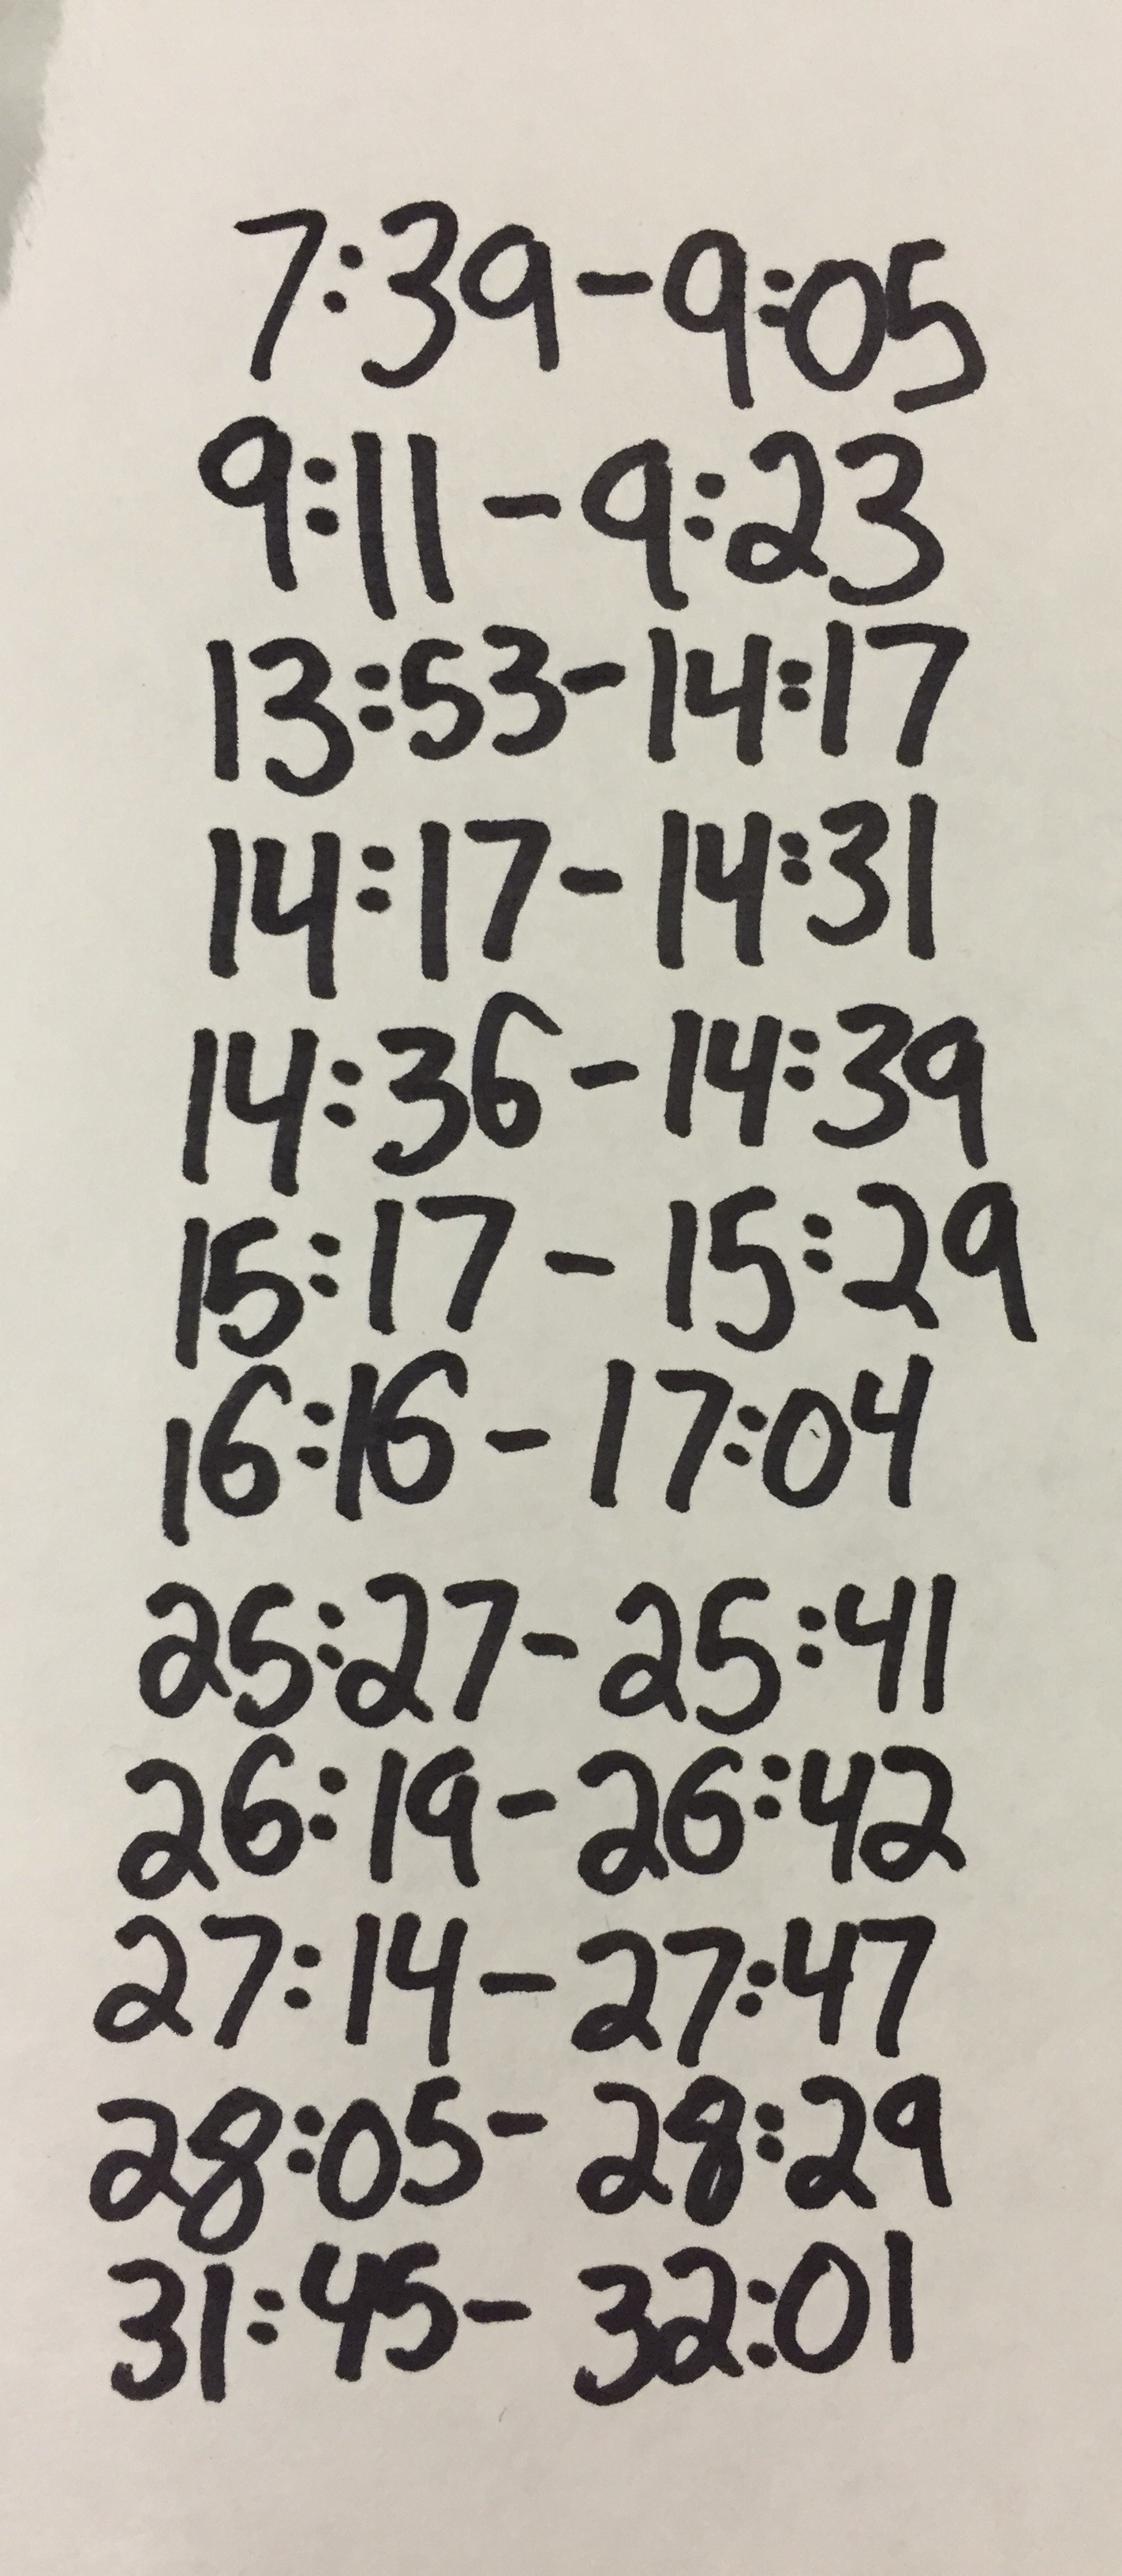 7:39-9:05
9:11-9:23
13:53-14:17
14:17-14:31
14:36-14:39
15:17-15:29
16:16-17:04
25:27-25:41
26:19-26:42
27:14-27:47
28:05-28:29
31:45-32:01